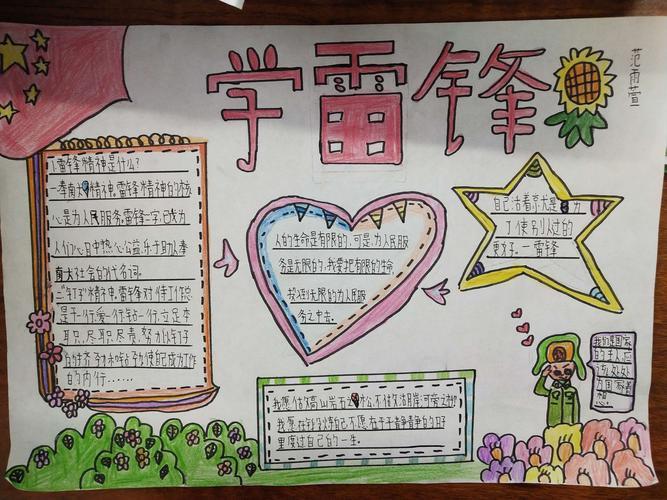 学雷锋
范雨萱
1雷锋精神是什么?
一奉南大精神。雷锋精神的核
心是为人民服务,雷锋一字,已成为
人们心目中热心公益,乐于助人奉
南大社会的代名词。
二"钉子"精神。雷锋对待工作总
是干一行,爱一行,钻一行,立足本
职,尽职尽责,努力以钉子
的挤
劲使自己成为工作
的内行……
人的生命是有限的,可是,为人民服
务是无限的,我要把有限的生命
投到无限的为人民服
务之中去。
自己活着就是为
了使别人过的
更好。一雷锋
我愿做高山岩石之松,不做湖岸河旁之柳
我愿在
里度过自己的一生。
我们是国家
的主人,应
该处处
为国家着
想